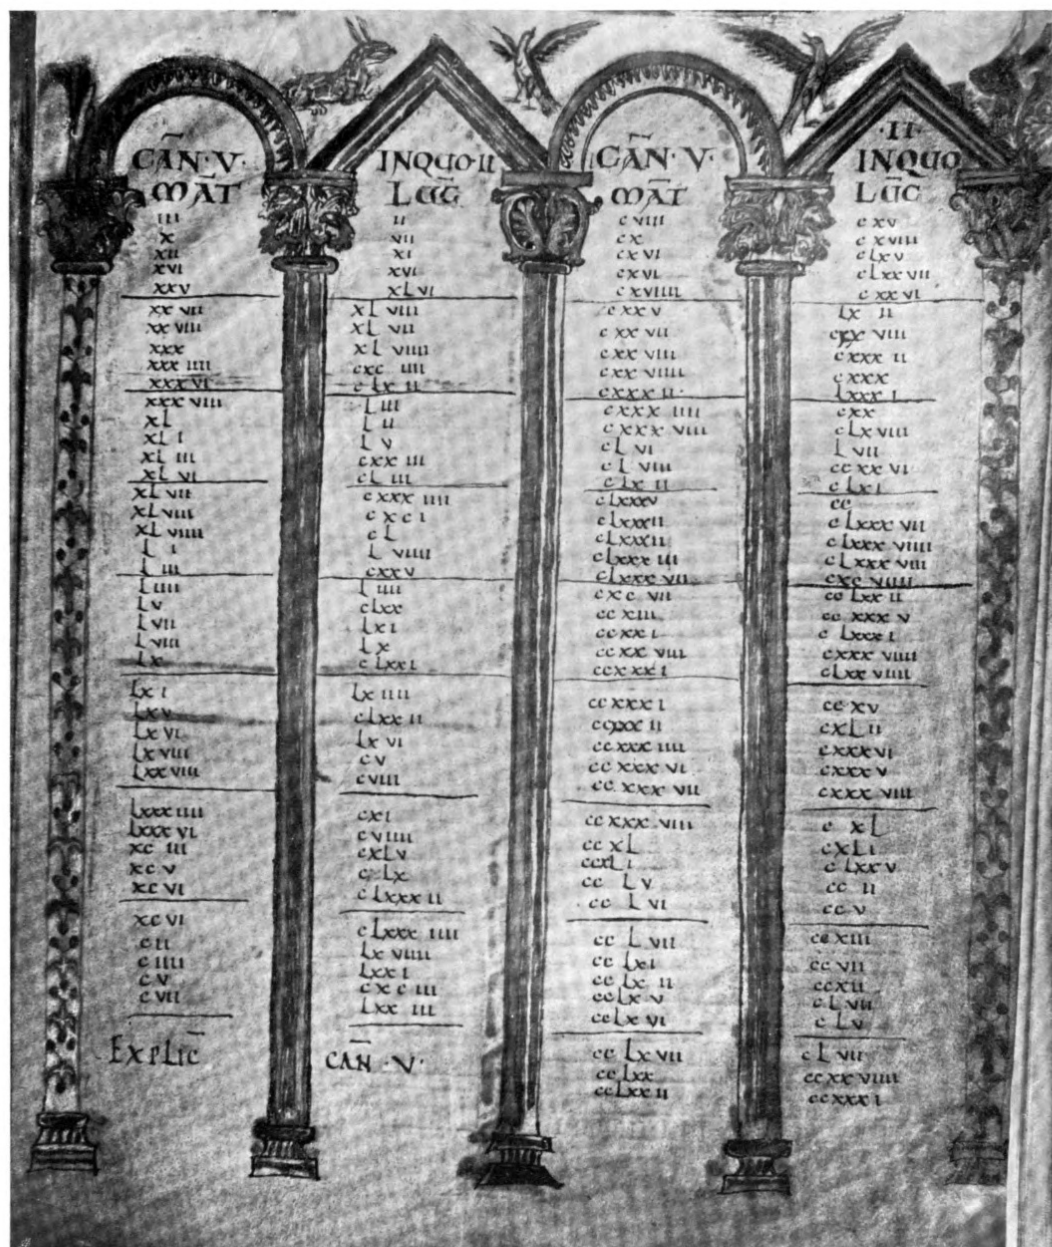 CAN · V ·
MAT
III
X
XII
XVI
XXV
XXVII
XXVIII
XXX
XXXIIII
XXXVI
XXXVIII
XL
XLI
XLIII
XLVI
XLVII
XLVIII
XLVIIII
LI
LIII
LIIII
LV
LVII
LVIII
LX
LXI
LXV
LXVI
LXVIII
LXXVIII
LXXXIIII
LXXXVI
XCIII
XCV
XCVI
XCVI
CII
CIIII
CV
CVII
EXPLIC
INQUO · II
LUC
II
VII
XI
XVI
XLVI
XLVIII
XLVII
XLVIIII
CXCIIII
CLXII
LIII
LII
LV
CXXIII
CLIII
CXXXIIII
CXCI
CL
LVIIII
CXXV
LIIII
CLXX
LXI
LX
CLXXI
LXIIII
CLXXII
LXVI
CV
CVIII
CXI
CVIIII
CXLV
CLX
CLXXXII
CLXXXIIII
LXVIIII
LXXI
CXCIII
LXXIII
CAN · V ·
CAN · V ·
MAT
CVIII
CX
CXVI
CXVI
CXVIIII
CXXV
CXXVII
CXXVIII
CXXVIIII
CXXXII
CXXXIIII
CXXXVIII
CLVI
CLVIII
CLXII
CLXXXV
CLXXXII
CLXXXII
CLXXXIII
CLXXXVII
CXCVII
CCXIII
CCXXI
CCXXVIII
CCXXXI
CCXXXI
CCXXXII
CCXXXIIII
CCXXXVI
CCXXXVII
CCXXXVIII
CCXL
CCXLI
CCLV
CCLVI
CCLVII
CCLXI
CCLXII
CCLXV
CCLXVI
CCLXVII
CCLXX
CCLXXII
· II ·
INQUO
LUC
CXV
CXVIII
CLXV
CLXXVII
CXXVI
LXII
CXXXII
CXXX
LXXXI
CXX
CLXVIII
LVII
CCXXVI
CLXI
CC
CLXXXVII
CLXXXVIIII
CLXXXVIII
CXCVIIII
CCLXXII
CCXXXV
CLXXXI
CXXXVIIII
CLXXVIIII
CCXV
CXLII
CXXXVI
CXXXV
CXXXVIII
CXL
CXLI
CLXXV
CCII
CCV
CCXIII
CCVII
CCXII
CLVII
CLV
CLVII
CCXXVIIII
CCXXXI